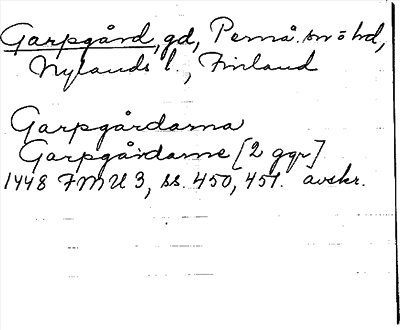 Garpgård, gd, Pernå sn o hd,
Nylands l., Finland
Garpgårdarna
Garpgårdarne [2 ggr]
1448 FMU 3, ss. 450, 451. avskr.